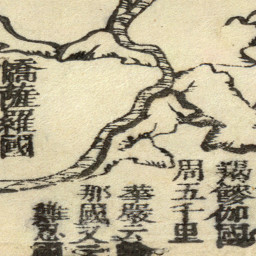 羯餕伽國
周五千里
華嚴云
那國又云
難國
憍薩羅國